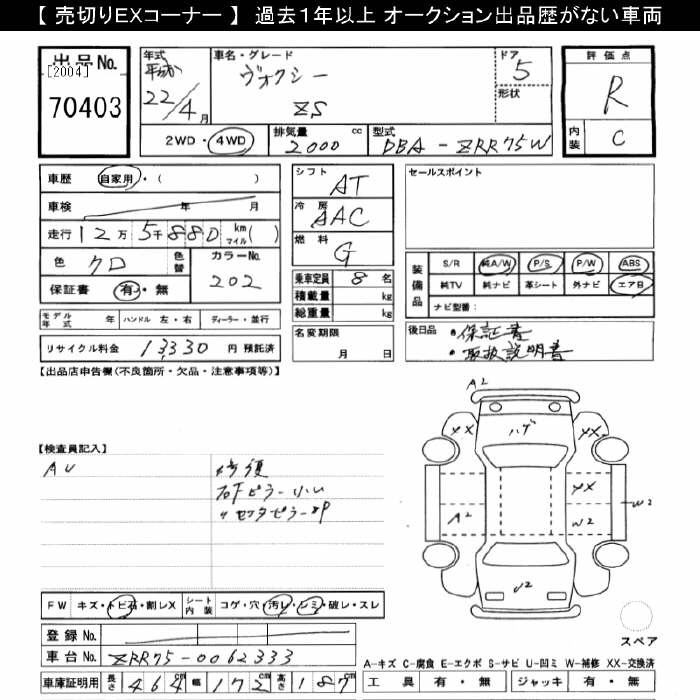 【 売切りEXコーナー 】 過去１年以上 オークション出品歴がない車両
出品No.
[2004]
70403
年式
平成
22/4月
車名・グレード
ヴォクシー
ZS
ドア
5
形状
評価点
R
内装
C
2WD・4WD
排気量
2000 cc
型式
DBA-ZRR75W
車歴 自家用・( )
車検 年 月
走行 12万5千880 km マイル( )
色 クロ
色替
カラーNo.
202
保証書 有・無
シフト
AT
冷房
AAC
燃料
G
乗車定員 8名
積載量 kg
総重量 kg
セールスポイント
装備品
S/R 純A/W P/S P/W ABS
純TV 純ナビ 革シート 外ナビ エアB
ナビ型番:
モデル年式 年
ハンドル 左・右
ディーラー・並行
名変期限
月 日
後日品
・保証書
・取扱説明書
リサイクル料金 13330 円 預託済
【出品店申告欄(不良箇所・欠品・注意事項等)】
【検査員記入】
AU
修復
右Fピラー小い
〃センタピラーXP
A2
XX
ハゲ
XX
XX
A2
W2
W2
U2
スペア
FW キズ・トビ石・割レX
シート内装 コゲ・穴・汚レ・シミ・破レ・スレ
登録No.
車台No. ZRR75-0062333
A-キズ C-腐食 E-エクボ S-サビ U-凹ミ W-補修 XX-交換済
車庫証明用 長さ 464cm 幅 172cm 高さ 187cm
工具 有・無 ジャッキ 有・無